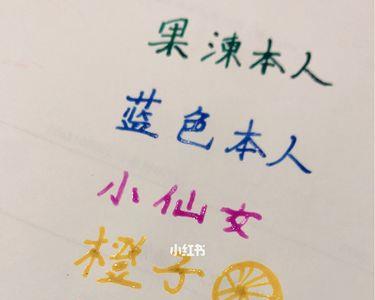 果涷本人
蓝色本人
小仙女
小红书
橙子